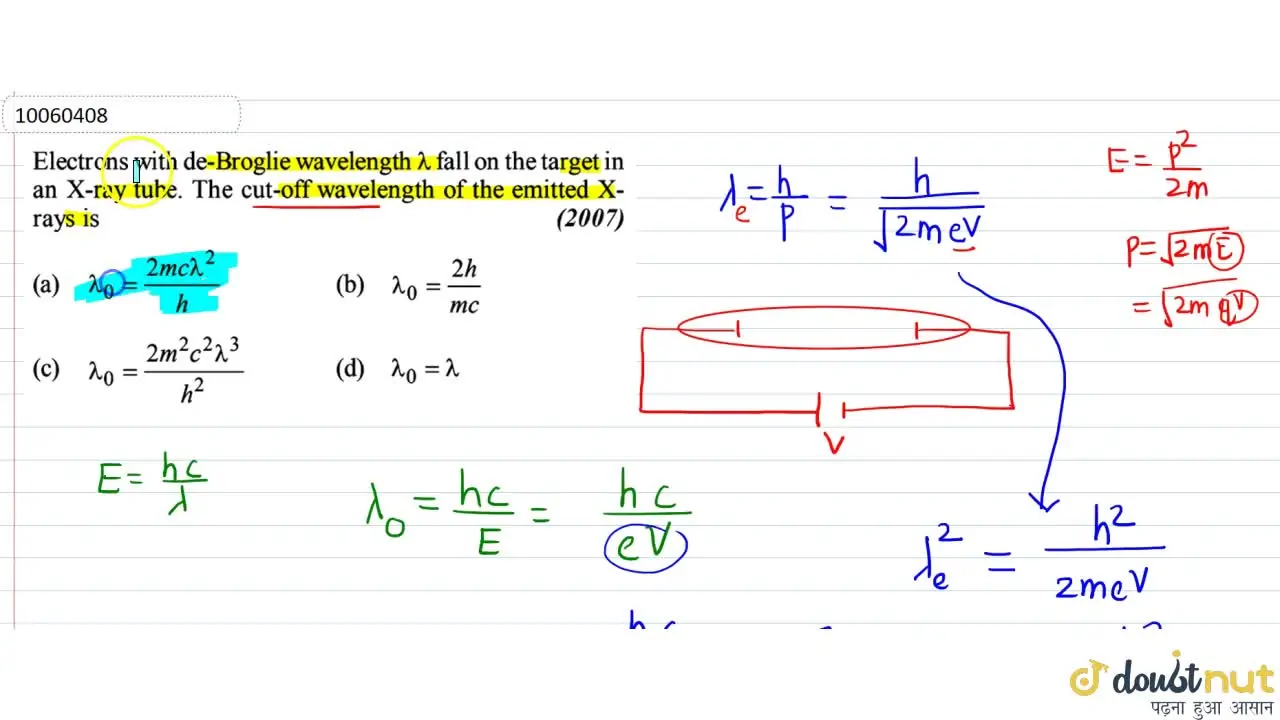 10060408
Electrons with de-Broglie wavelength λ fall on the target in
an X-ray tube. The cut-off wavelength of the emitted X-
rays is (2007)
(a) λ₀ = 2mcλ²/h (b) λ₀ = 2h/mc
(c) λ₀ = 2m²c²λ³/h² (d) λ₀ = λ
λe = h/p = h/√2meV
E = p²/2m
P = √2mE
= √2mqV
V
E = hc/λ
λ₀ = hc/E = hc/eV
λe² = h²/2meV
hc
doubtnut
पढ़ना हुआ आसान